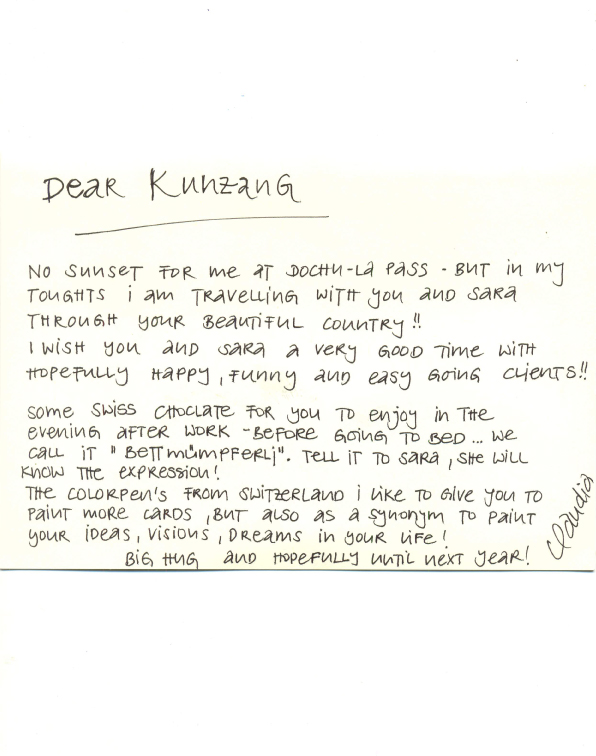 Dear Kunzang
No sunset for me at Dochu-La Pass - but in my
toughts i am travelling with you and Sara
through your beautiful country!!
I wish you and Sara a very good time with
hopefully happy, funny and easy going clients!!
Some Swiss choclate for you to enjoy in the
evening after work - before going to bed... we
call it "Bettmümpferlj". Tell it to Sara, she will
know the expression!
The colorpen's from Switzerland i like to give you to
paint more cards, but also as a synonym to paint
your ideas, visions, dreams in your life!
Big hug and hopefully until next year!
Claudia